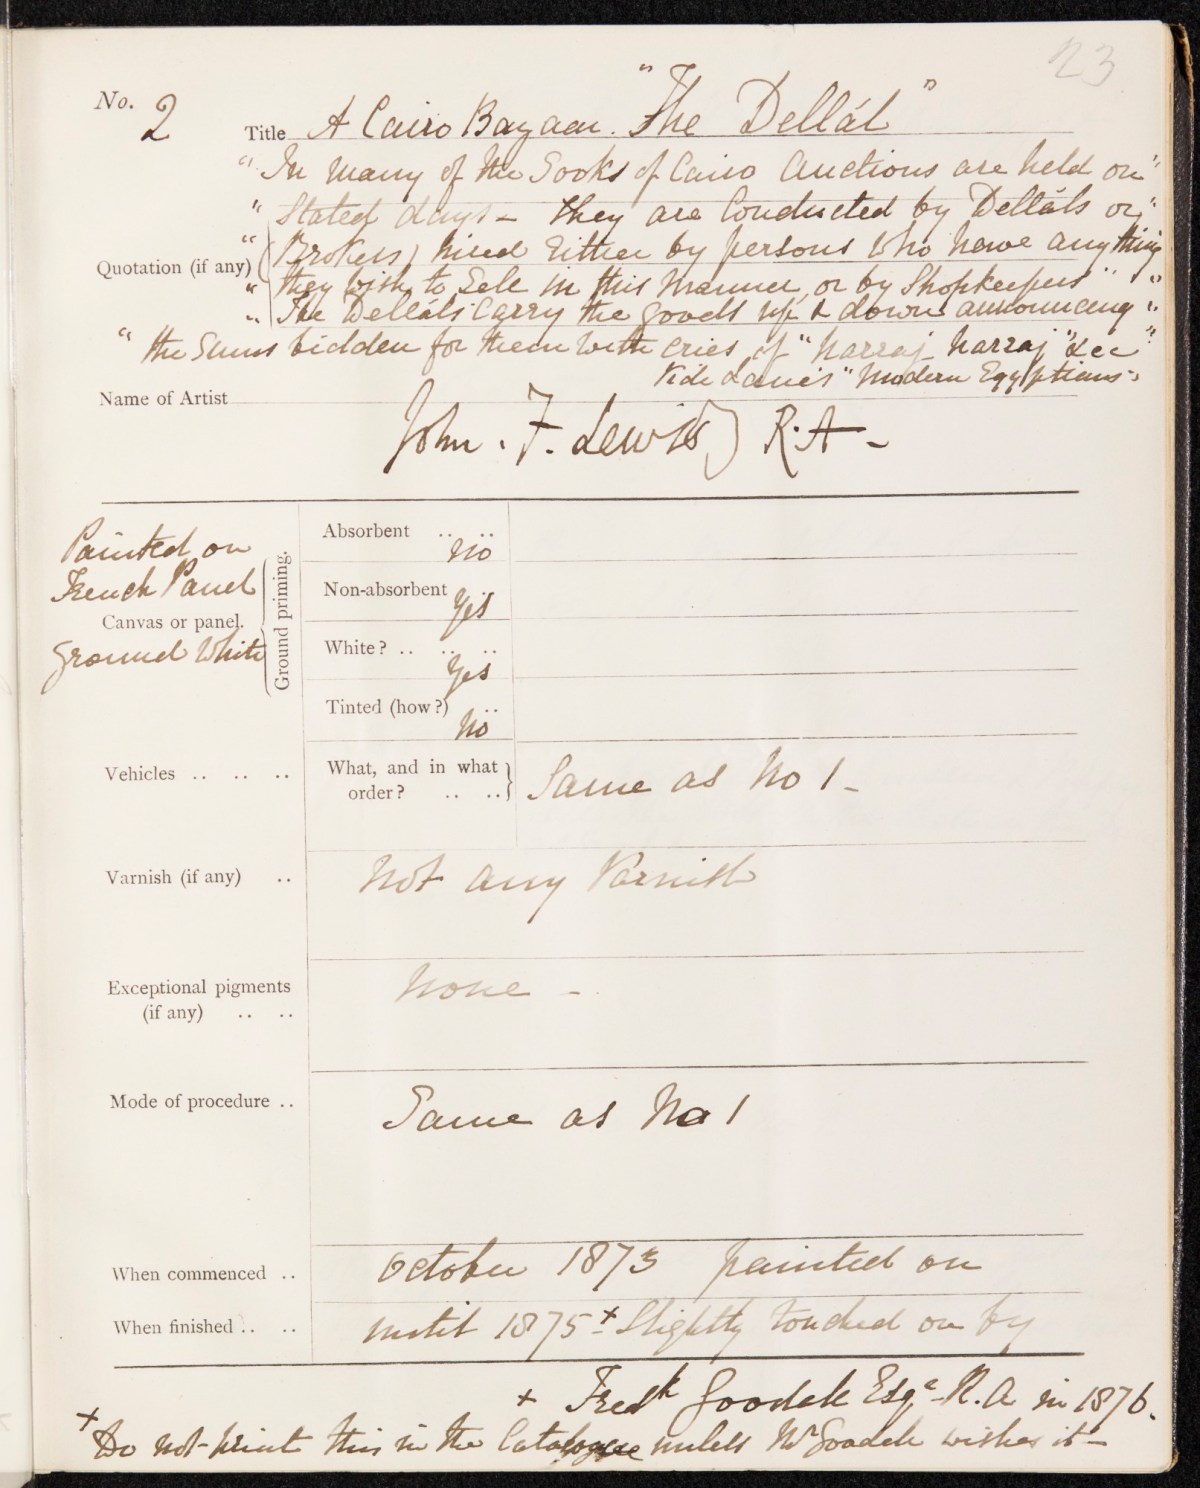 23
No. 2 Title A Cairo Bazaar. "The Dellál"
" In many of the Sooks of Cairo Auctions are held on "
" Stated days - they are Conducted by Delláls or "
" (Brokers) hired Either by persons who have any thing
Quotation (if any)
" they wish to Sell in this Manner, or by Shopkeepers " "
" The Delláls Carry the goods up & down announcing "
" the Sums bidden for them with cries of "harraj harraj" &c "
Vide Lane's "Modern Egyptians"
Name of Artist
John. F. Lewis R.A -
Painted on
French Panel
Canvas or panel.
Ground White
Ground priming.
Absorbent .. .. No
Non-absorbent Yes
White? .. .. .. Yes
Tinted (how?) .. No
Vehicles .. .. .. What, and in what order? .. .. Same as No 1 -
Varnish (if any) .. Not any Varnish
Exceptional pigments (if any) .. .. None -
Mode of procedure .. Same as No 1
When commenced .. October 1873 painted on
When finished .. .. until 1875 + Slightly touched on by
+ Fredk Goodall Esqe R.A in 1876.
+ Do not print this in the Catalogue unless Mr Goodall wishes it -